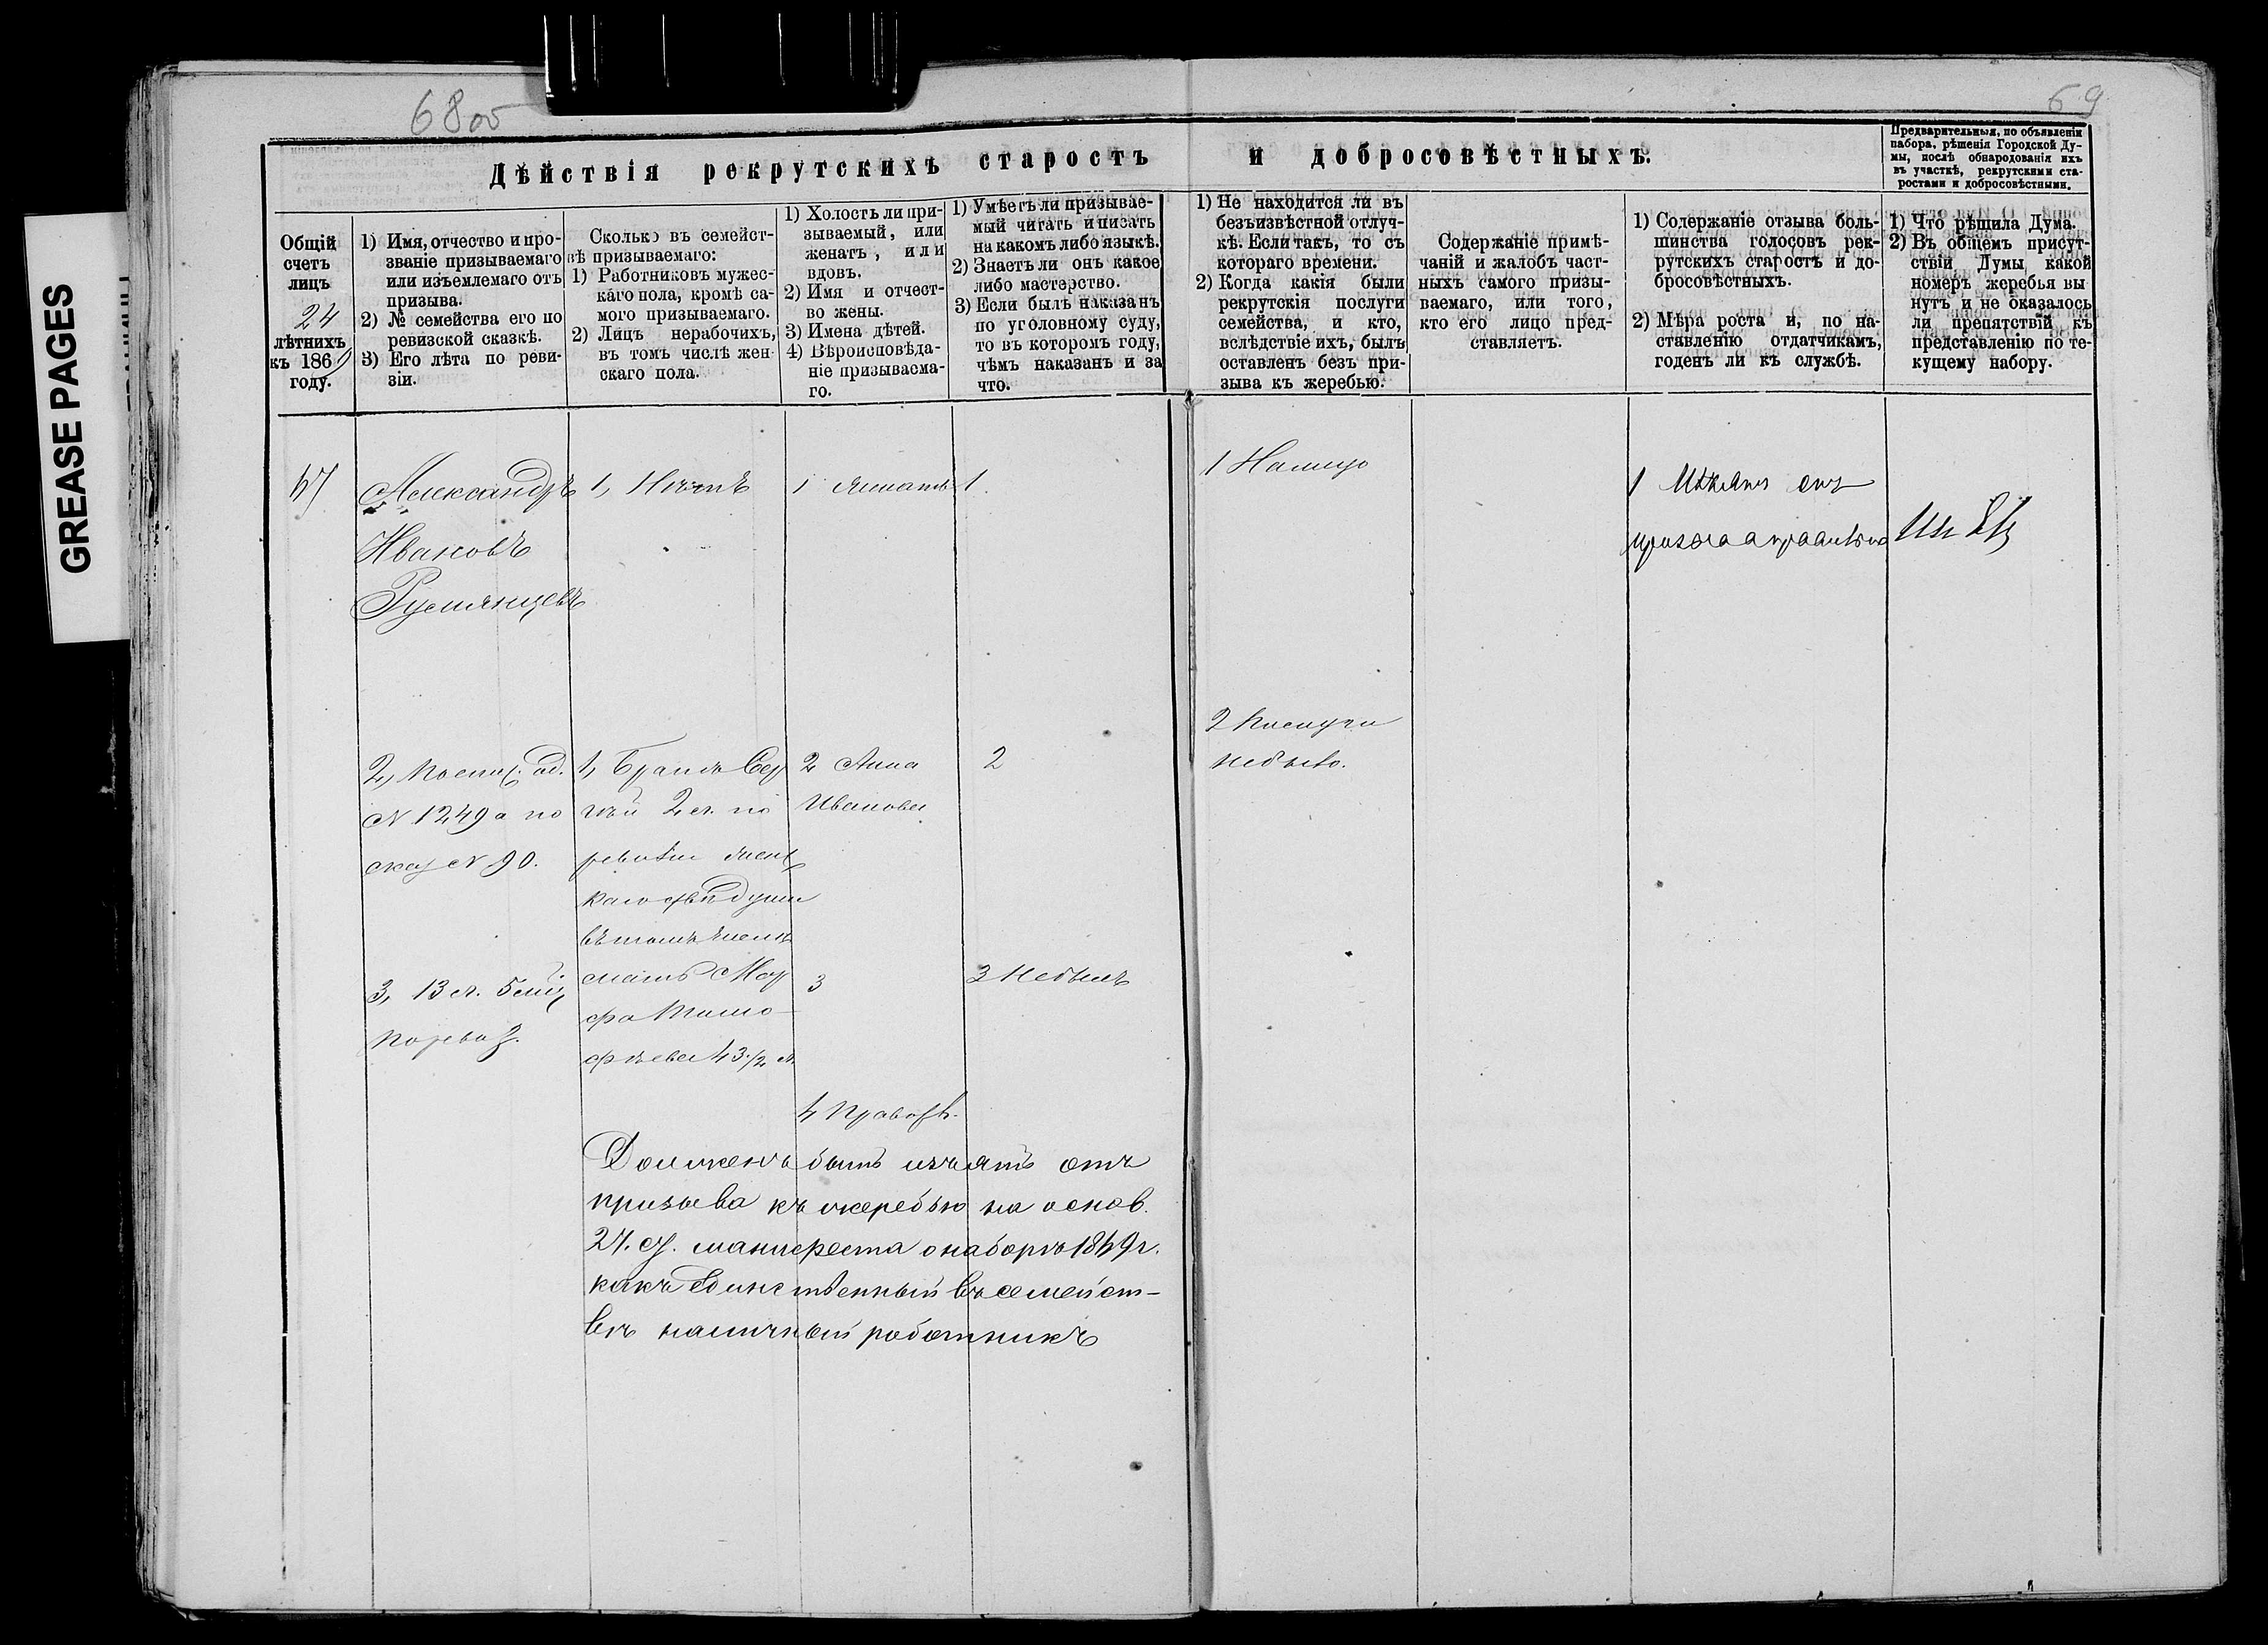 GREASE PAGES
68 об
69
Дѣйствія рекрутскихъ старостъ и добросовѣстныхъ.
Предварительныя, по объявленіи
набора, рѣшенія Городской Ду-
мы, послѣ обнародованія ихъ
въ участкѣ, рекрутскими ста-
ростами и добросовѣстными.
Общій
счетъ
лицъ
24
лѣтнихъ
къ 1869
году.
1) Имя, отчество и про-
званіе призываемаго
или изъемлемаго отъ
призыва.
2) № семейства его по
ревизской сказкѣ.
3) Его лѣта по реви-
зіи.
Сколько въ семейст-
вѣ призываемаго:
1) Работниковъ мужес-
каго пола, кромѣ са-
мого призываемаго.
2) Лицъ нерабочихъ,
въ томъ числѣ жен-
скаго пола.
1) Холостъ ли при-
зываемый, или
женатъ, или
вдовъ.
2) Имя и отчест-
во жены.
3) Имена дѣтей.
4) Вѣроисповѣда-
ніе призываема-
го.
1) Умѣетъ ли призывае-
мый читать и писать
на какомъ либо языкѣ.
2) Знаетъ ли онъ какое
либо мастерство.
3) Если былъ наказанъ
по уголовному суду,
то въ которомъ году,
чѣмъ наказанъ и за
что.
1) Не находится ли въ
безъизвѣстной отлуч-
кѣ. Если такъ, то съ
котораго времени.
2) Когда какія были
рекрутскія послуги
семейства, и кто,
вслѣдствіе ихъ, былъ
оставленъ безъ при-
зыва къ жеребью.
Содержаніе примѣ-
чаній и жалобъ част-
ныхъ самого призы-
ваемаго, или того,
кто его лицо пред-
ставляетъ.
1) Содержаніе отзыва боль-
шинства голосовъ рек-
рутскихъ старостъ и до-
бросовѣстныхъ.
2) Мѣра роста и, по на-
ставленію отдатчикамъ,
годенъ ли къ службѣ.
1) Что рѣшила Дума.
2) Въ общемъ присут-
ствіи Думы какой
номеръ жеребья вы
нутъ и не оказалось
ли препятствій къ
представленію по те-
кущему набору.
Александръ
Ивановъ
Румянцевъ
2,
№ 1249 а по
сказ № 90.
3, 13 л.
по реviз.
1, Нѣтъ
1, Братъ Сер
гѣй 2 л. по
ревизіи
души
въ томъ
мать Мар
фа Тимо-
фѣева 43 1/2 л
1 Женатъ
2 Анна
Иванова
3
4 Правосл.
1.
2
3 Небылъ
Долженъ быть изъятъ отъ
призыва къ жеребью на основ.
ст. манифеста о наборѣ 1869 г.
какъ единственный въ семейст-
вѣ наличный работникъ
1 Налицо
2 Послуги
небыло.
1 Изъять отъ
призыва